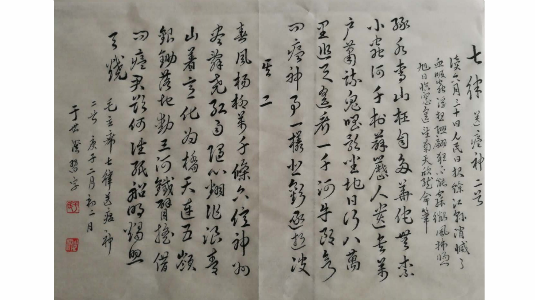 七律 送瘟神二首
读六月三十日人民日报余江县消灭了
血吸虫浮想联翩夜不能寐微风拂煦
旭日临窗遥望南天欣然命笔
绿水青山枉自多华佗无奈
小虫何千村薜荔人遗矢万
户萧疏鬼唱歌坐地日行八万
里巡天遥看一千河牛郎欲
问瘟神事一样悲欢逐逝波
其二
春风杨柳万千条六亿神州
尽舜尧红雨随心翻作浪青
山着意化为桥天连五岭
银锄落地动三河铁臂摇借
问瘟君欲何往纸船明烛照
天烧
毛主席七律送瘟神
二首 庚子二月初二日